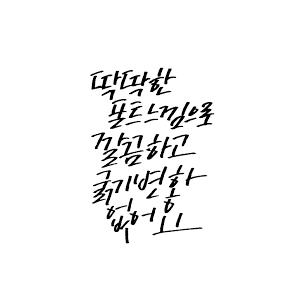 딱딱한
폰트느낌으로
깔끔하고
굵기변화
없어요